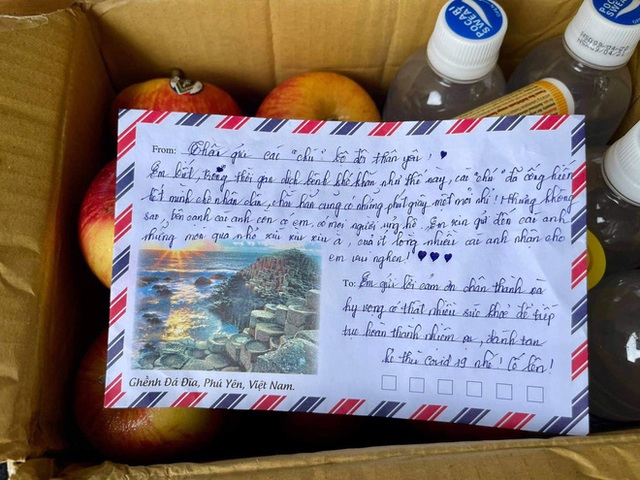 POCARI SWEAT
POCARI SWEAT
From: Thân gửi các "chú" bộ đội thân yêu! ♥
Em biết, trong thời gian dịch bệnh khó khăn như thế này, các "chú" đã cống hiến
hết mình cho nhân dân, chắc hẳn cũng có những phút giây mệt mỏi nhỉ! Nhưng không
sao, bên cạnh các anh còn có em, có mọi người ủng hộ. Em xin gửi đến các anh
những món quà nhỏ xíu xiu xíu ạ, của ít lòng nhiều các anh nhận cho
em vui nghen! ♥♥♥
To: Em gửi lời cảm ơn chân thành và
hy vọng có thật nhiều sức khoẻ để tiếp
tục hoàn thành nhiệm vụ, đánh tan
kẻ thù covid 19 nhé! Cố lên!
Ghềnh Đá Đĩa, Phú Yên, Việt Nam.